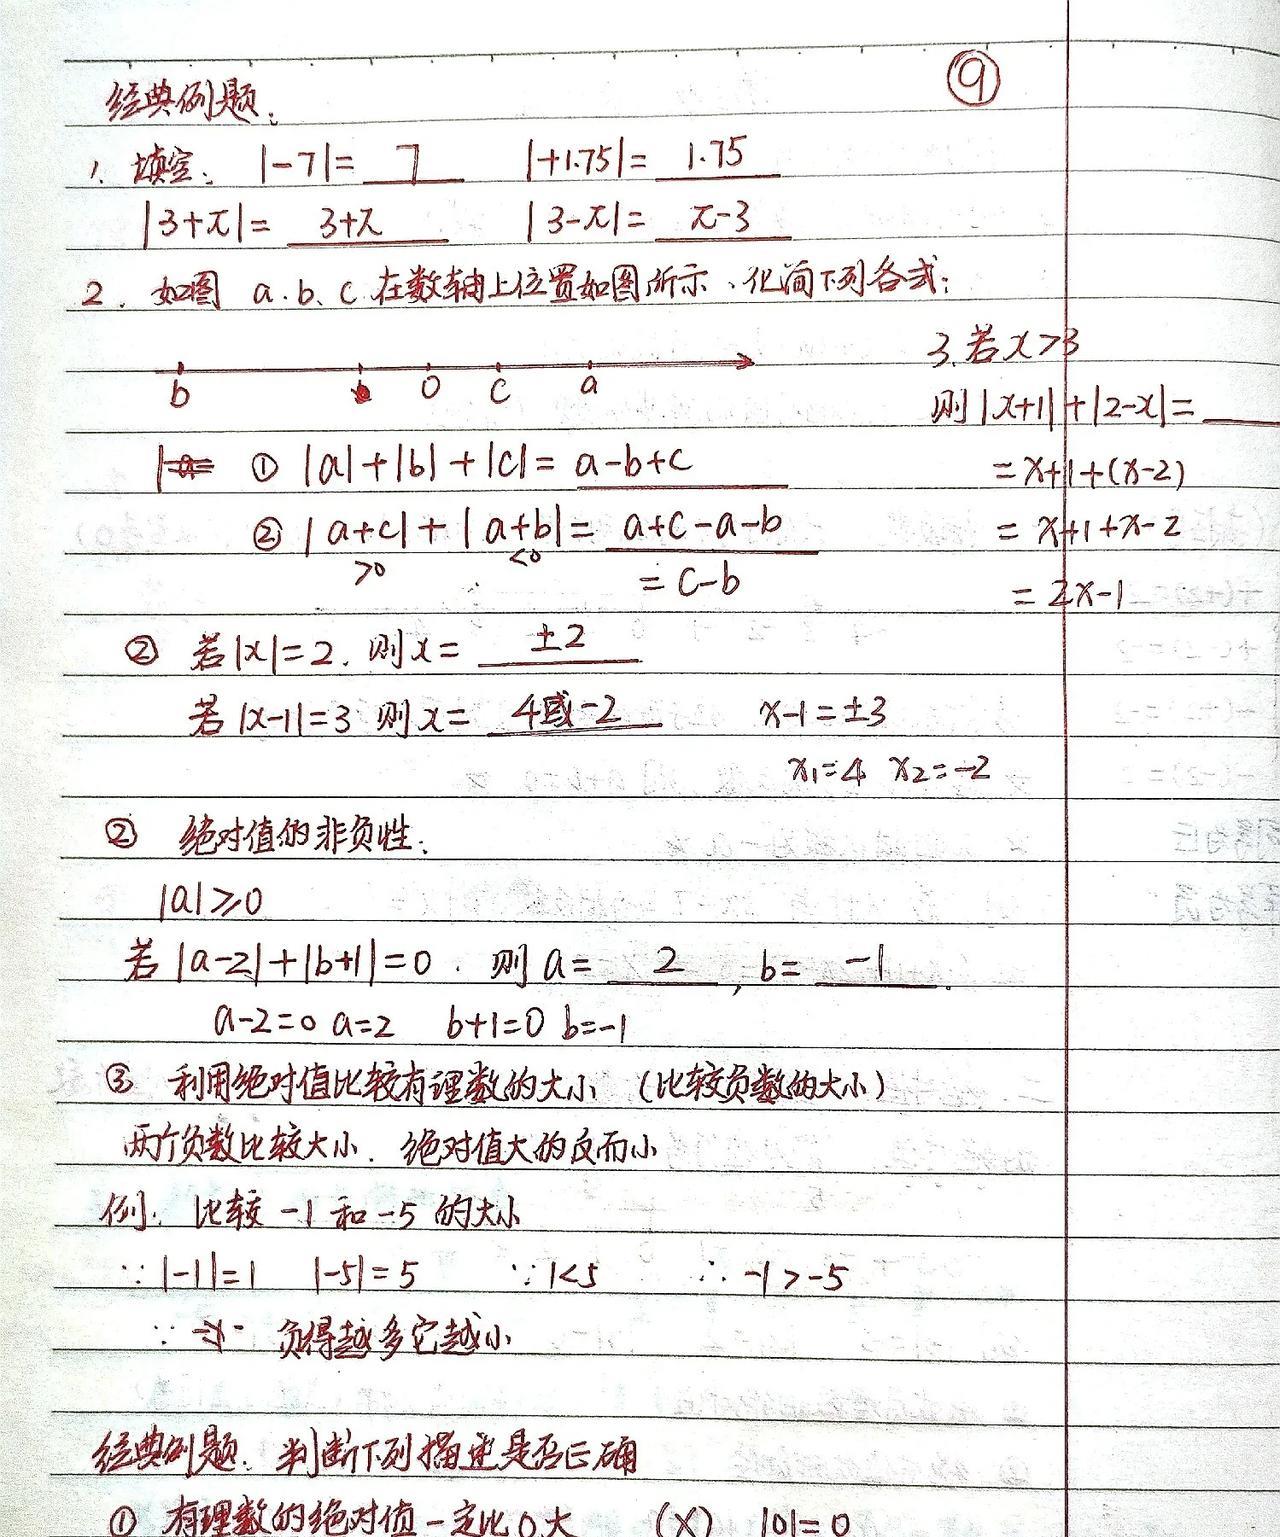 ⑨
经典例题:
1. 填空: |-7|= 7 |+1.75|= 1.75
|3+π|= 3+π |3-π|= π-3
2. 如图 a.b、c在数轴上位置如图所示、化简下列各式:
b 0 c a
① |a|+|b|+|c|= a-b+c
② |a+c|+|a+b|= a+c-a-b
>0 <0
=c-b
3.若x>3
则|x+1|+|2-x|=
=x+1+(x-2)
=x+1+x-2
=2x-1
② 若|x|=2. 则x= ±2
若|x-1|=3 则x= 4或-2 x-1=±3
x₁=4 x₂=-2
② 绝对值的非负性:
|a|≥0
若|a-2|+|b+1|=0. 则a= 2, b= -1.
a-2=0 a=2 b+1=0 b=-1
③ 利用绝对值比较有理数的大小 (比较负数的大小)
两个负数比较大小. 绝对值大的反而小
例: 比较-1和-5的大小
∵|-1|=1 |-5|=5 ∵1<5 ∴-1>-5
∵ 负得越多它越小
经典例题: 判断下列描述是否正确
① 有理数的绝对值一定比0大 (×) |0|=0